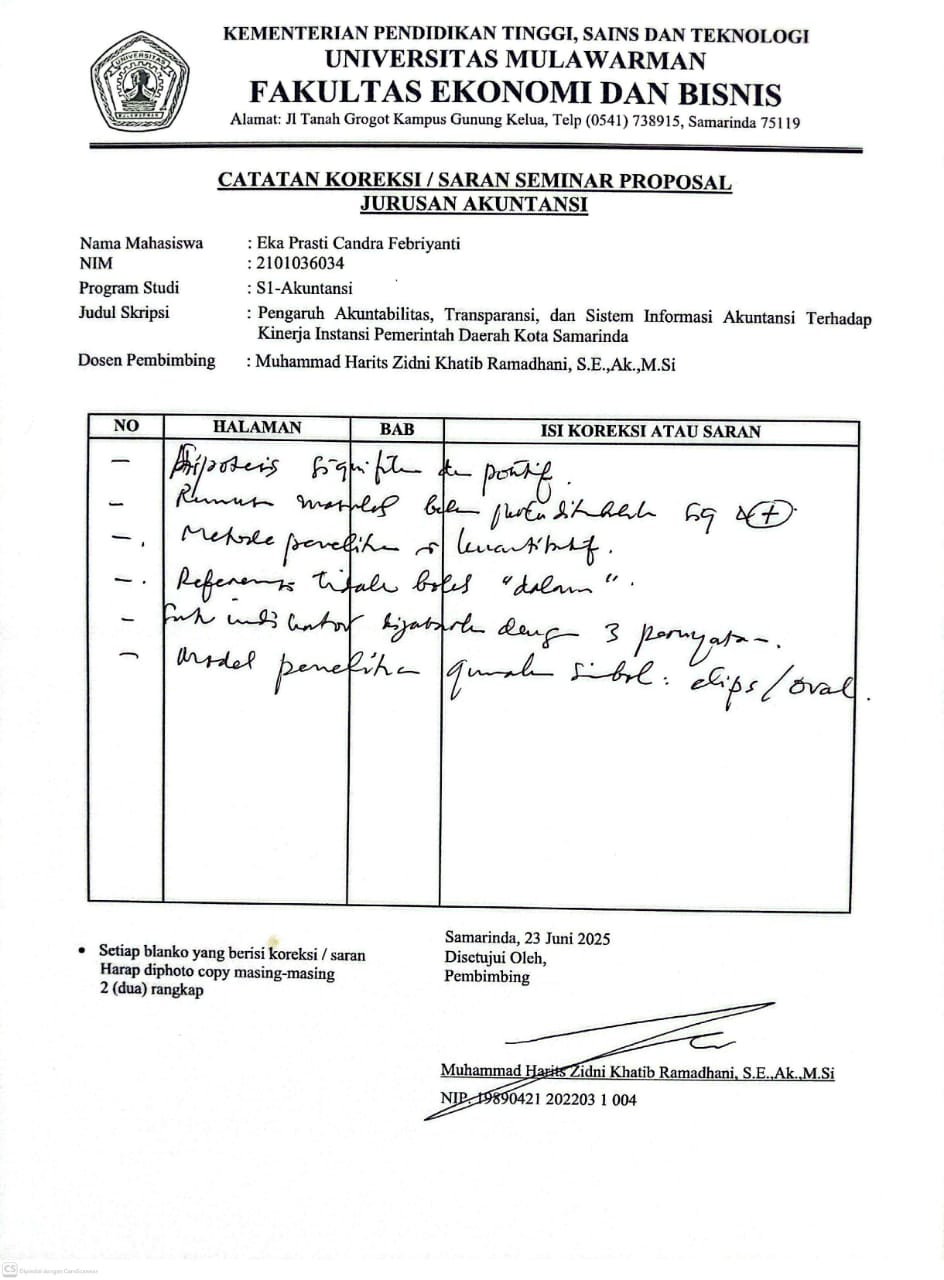 UNIVERSITAS
MULAWARMAN
KEMENTERIAN PENDIDIKAN TINGGI, SAINS DAN TEKNOLOGI
UNIVERSITAS MULAWARMAN
FAKULTAS EKONOMI DAN BISNIS
Alamat: Jl Tanah Grogot Kampus Gunung Kelua, Telp (0541) 738915, Samarinda 75119
CATATAN KOREKSI / SARAN SEMINAR PROPOSAL
JURUSAN AKUNTANSI
Nama Mahasiswa : Eka Prasti Candra Febriyanti
NIM : 2101036034
Program Studi : S1-Akuntansi
Judul Skripsi : Pengaruh Akuntabilitas, Transparansi, dan Sistem Informasi Akuntansi Terhadap
Kinerja Instansi Pemerintah Daerah Kota Samarinda
Dosen Pembimbing : Muhammad Harits Zidni Khatib Ramadhani, S.E.,Ak.,M.Si
NO HALAMAN BAB ISI KOREKSI ATAU SARAN
- Hipotesis signifikan dan positif.
- Rumusan masalah sig +
- Metode penelitian kuantitatif.
- Referensi tidak boleh "dalam".
- indikator dengan 3 pernyataan.
- Model penelitian gunakan simbol: elips/oval.
• Setiap blanko yang berisi koreksi / saran
Harap diphoto copy masing-masing
2 (dua) rangkap
Samarinda, 23 Juni 2025
Disetujui Oleh,
Pembimbing
Muhammad Harits Zidni Khatib Ramadhani, S.E.,Ak.,M.Si
NIP. 19890421 202203 1 004
CS Dipindai dengan CamScanner